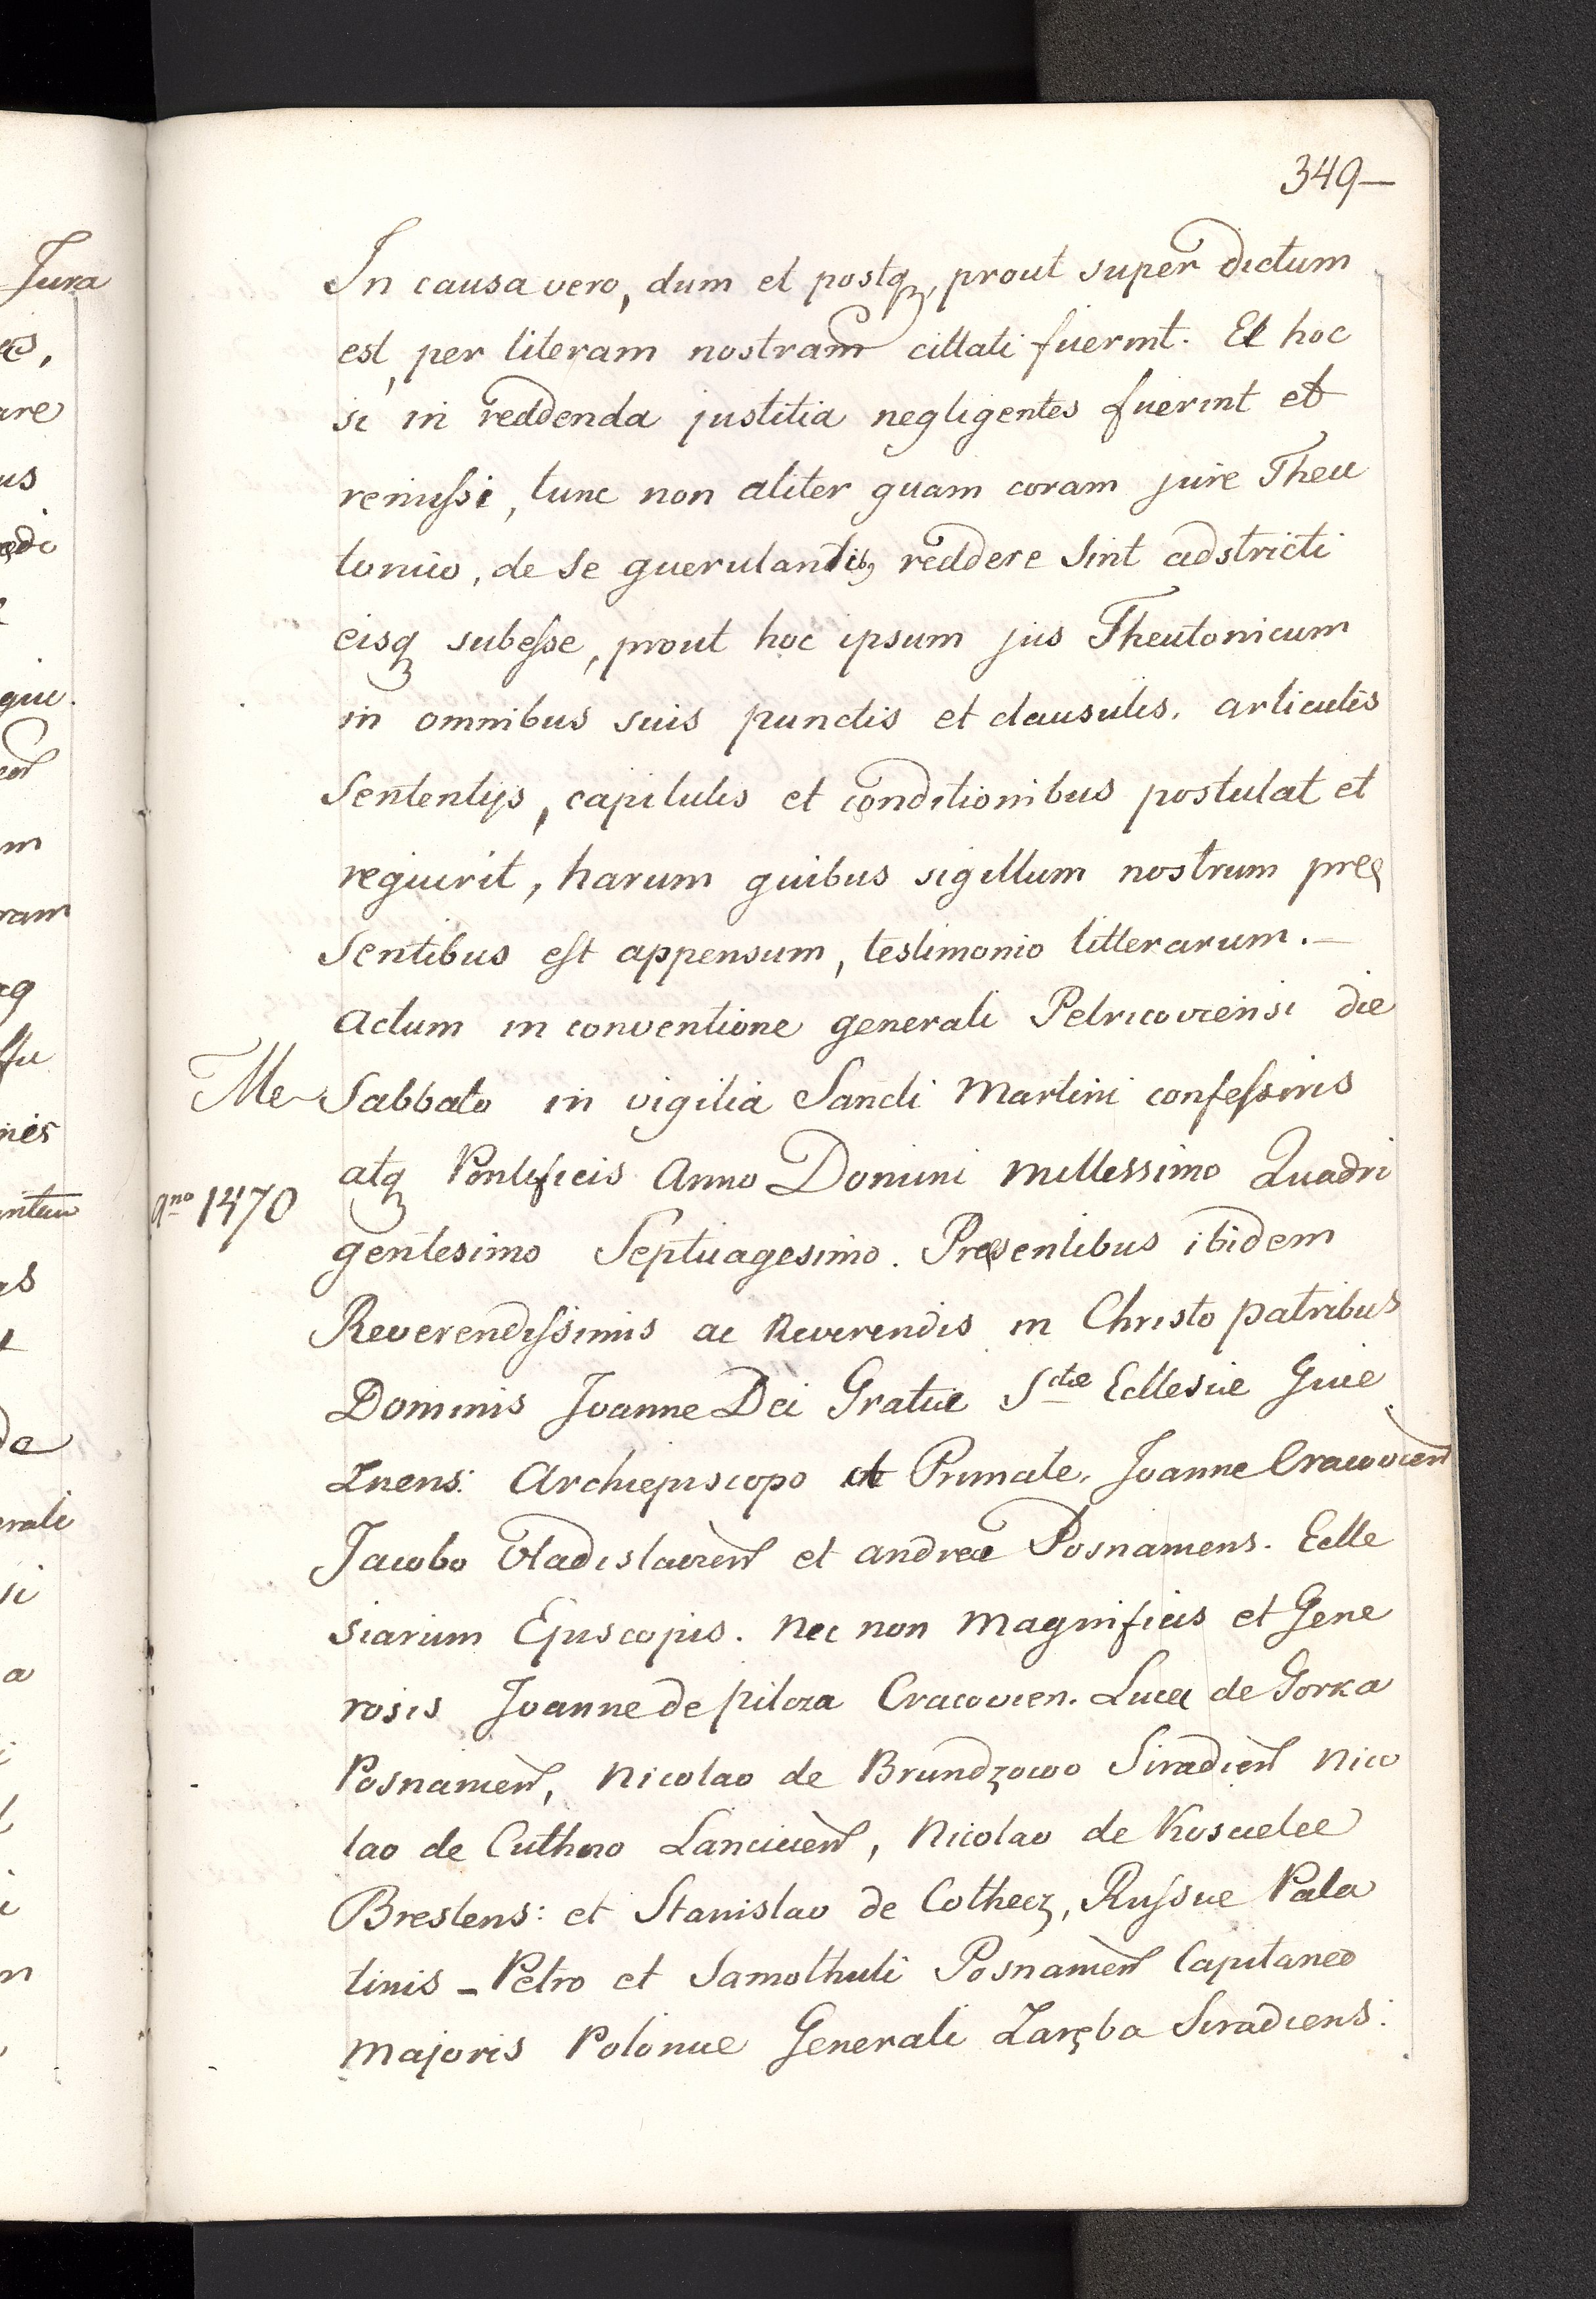 349—
In causa vero, dum et postqꝫ, prout super dictum
est, per literam nostram cittati fuerint. Et hoc
si in reddenda justitia negligentes fuerint et
remissi, tunc non aliter quam coram jure Theu
tonico, de se querulantibꝫ reddere sint adstricti
eisqꝫ subesse, prout hoc ipsum jus Theutonicum
in omnibus suis punctis et clausulis, articulis
Sententijs, capitulis et conditionibus postulat et
requirit, harum quibus sigillum nostrum præ
sentibus est appensum, testimonio litterarum.—
Actum in conventione generali Petricoviensi die
Me Sabbato in vigilia Sancti Martini confessoris
atqꝫ Pontificis Anno Domini Millessimo Quadri
Ano 1470
gentesimo Septuagesimo. Præsentibus ibidem
Reverendissimis ac Reverendis in Christo patribus
Dominis Joanne Dei Gratia Sctæ Ecllesiæ Gnie
znens: Archiepiscopo et Primate, Joanne Cracovien
Jacobo Vladislavien et Andrea Posnaniens. Eclle
siarum Episcopis. Nec non Magnificis et Gene
rosis Joanne de Pilcza Cracovien. Luca de Gorka
Posnanien, Nicolao de Brundzowo Siradien Nico
lao de Cuthno Lancicien, Nicolao de Koscielec
Brestens: et Stanislao de Cothecz, Russiæ Pala
tinis – Petro et Samothuli Posnanien Capitaneo
Majoris Poloniæ Generali Zaręba Siradiens:
Jura